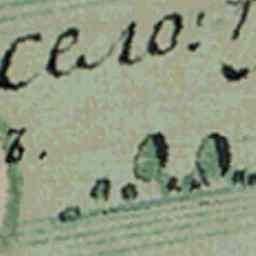 село:
ъ.